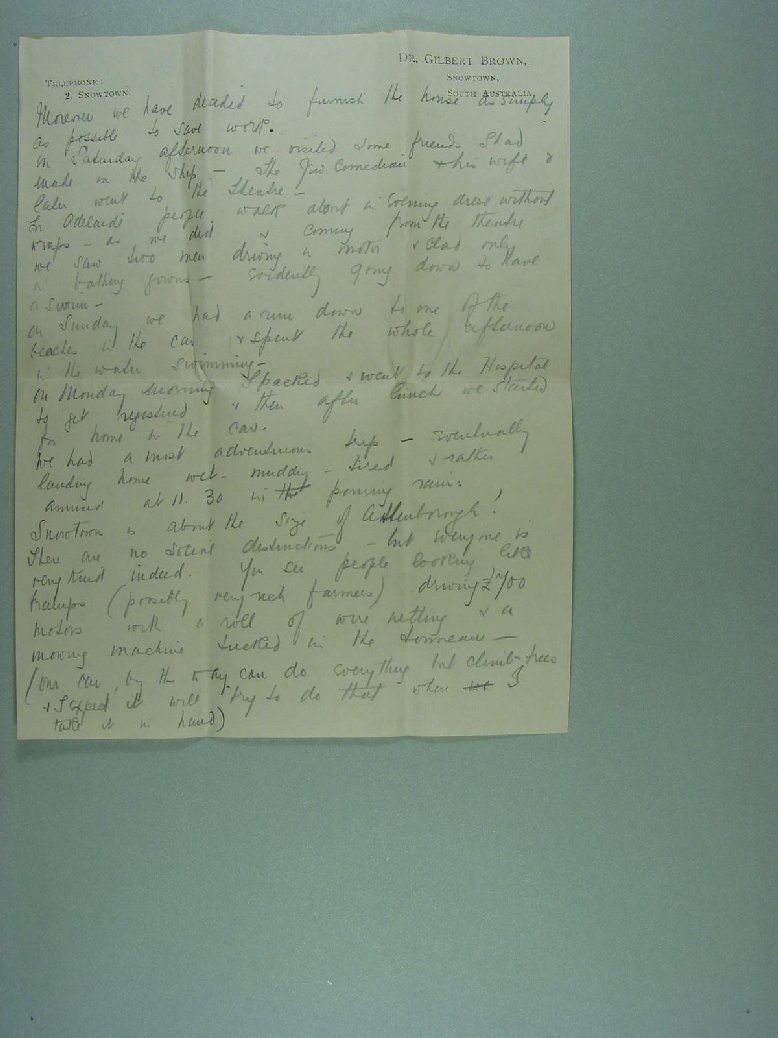 DR. GILBERT BROWN,
SNOWTOWN,
SOUTH AUSTRALIA
TELEPHONE:
2, SNOWTOWN.
Moreover we have decided to furnish the house as simply
as possible to save work.
On Saturday afternoon we visited some friends I had
made on the ship – The Jew Comedian & his wife &
later went to the Theatre –
In Adelaide people walk about in Evening dress without
wraps – as we did & coming from the theatre
we saw two men driving a motor & clad only
in bathing gowns – evidently going down to have
a swim –
On Sunday we had a run down to one of the
beaches in the car & spent the whole afternoon
in the water swimming –
On Monday morning I packed & went to the Hospital
to get registered & then after lunch we started
for home in the car.
We had a most adventurous trip – eventually
landing home wet – muddy – tired & rather
at 11.30 in the pouring rain.
Snowtown is about the size of Attenborough!
There are no social distinctions – but everyone is
very kind indeed. You see people looking like
tramps (possibly very rich farmers) driving £700
motors with a roll of wire netting & a
mowing machine tucked in the tonneau –
(Our car, by the way can do everything but climb trees
& I expect it will try to do that when we I
take it in hand)